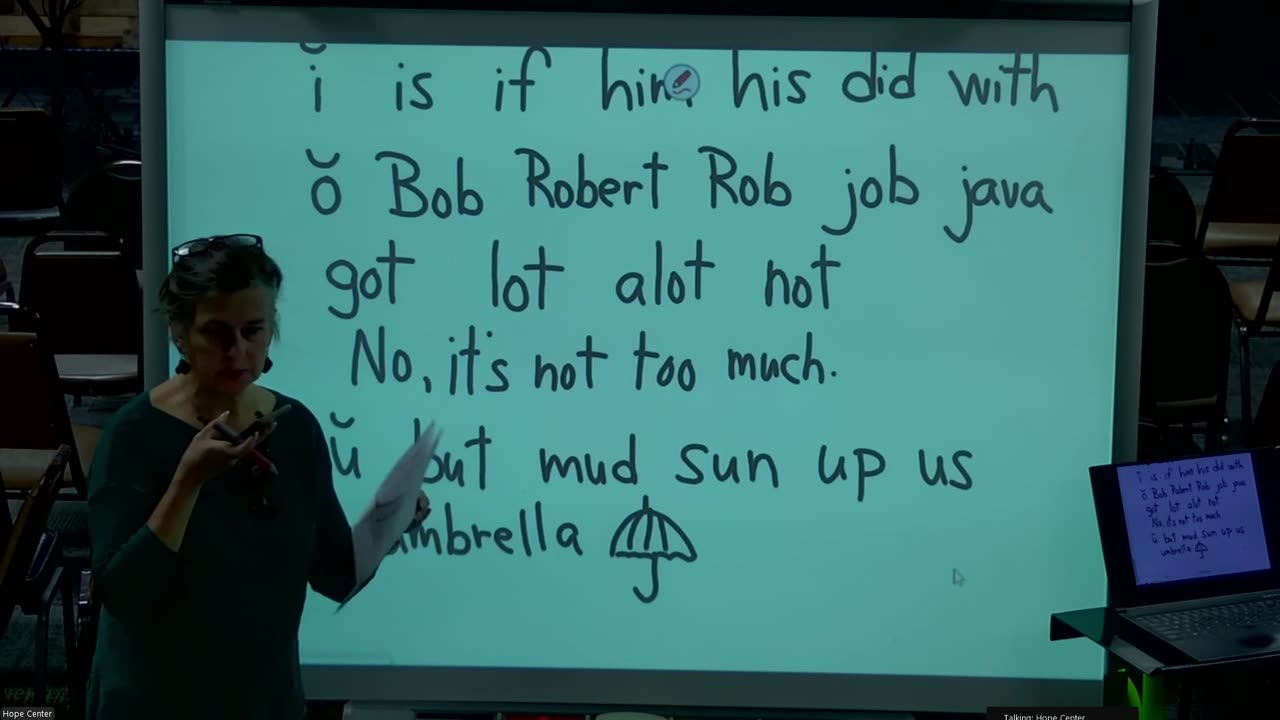 ĭ is if him his did with
ŏ Bob Robert Rob job java
got lot alot not
No, it's not too much.
ŭ but mud sun up us
umbrella
i is if him his did with
o Bob Robert Rob job java
got lot alot not
No, it's not too much
u but mud sun up us
umbrella
Hope Center
Talking: Hope Center